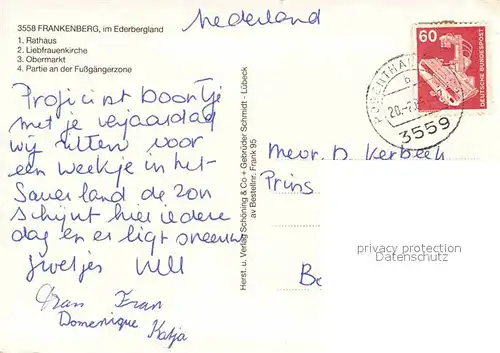 3558 FRANKENBERG, im Ederbergland
1. Rathaus
2. Liebfrauenkirche
3. Obermarkt
4. Partie an der Fußgängerzone
Nederland
60
DEUTSCHE BUNDESPOST
3559
Proficiat
met je verjaardag
wij zitten voor
een weekje in het
Sauerland de zon
schijnt hier iedere
dag en er ligt sneeuw
Fran
Domenique Katja
Herst. u. Verlag Schöning & Co + Gebrüder Schmidt - Lübeck
av Bestellnr. Frank 95
Mevr. D. Kerbeek
Prins
Be
privacy protection
Datenschutz